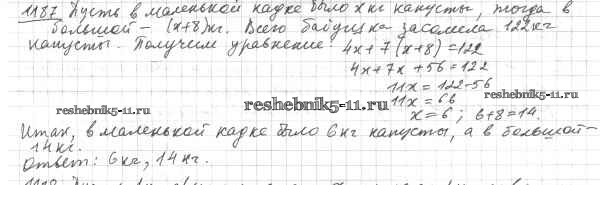 1187 Пусть в маленькой кадке было x кг капусты, тогда в
большой – (x+8)кг. Всего бабушка засолила 122кг
капусты. Получим уравнение: 4x+7(x+8)=122
4x+7x+56=122
11x=122-56
11x=66
x=6; 6+8=14.
reshebnik5-11.ru
reshebnik5-11.ru
reshebnik5-11.ru
Итак, в маленькой кадке было 6 кг капусты, а в большой –
14кг.
Ответ: 6кг, 14кг.